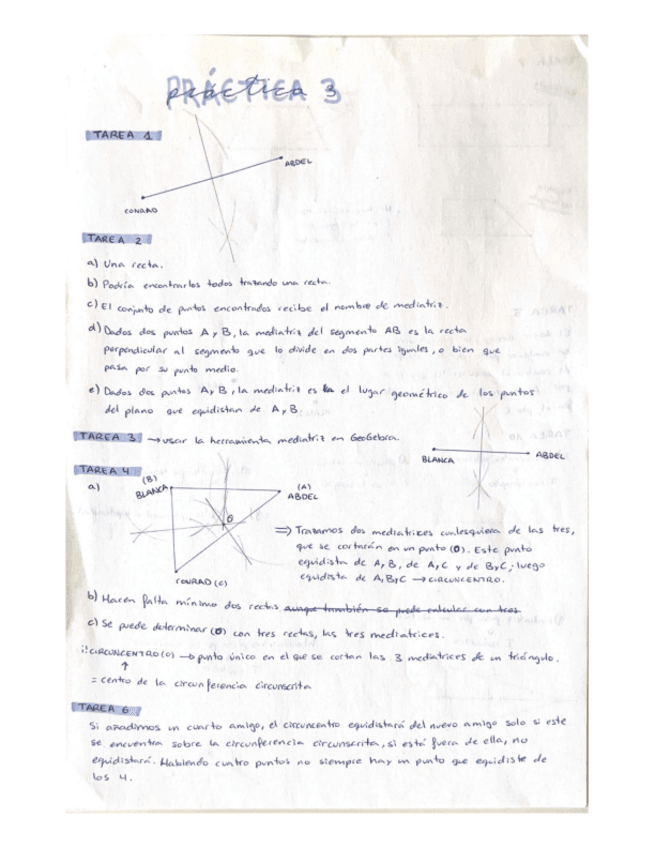 PRÁCTICA 3
práctica
TAREA 1
ABDEL
CONRAD
TAREA 2
a) Una recta.
b) Podría encontrarlos todos trazando una recta.
c) El conjunto de puntos encontrados recibe el nombre de mediatriz.
d) Dados dos puntos A y B, la mediatriz del segmento AB es la recta
perpendicular al segmento que lo divide en dos partes iguales, o bien que
pasa por su punto medio.
e) Dados dos puntos A y B, la mediatriz es la el lugar geométrico de los puntos
del plano que equidistan de A y B.
TAREA 3 → usar la herramienta mediatriz en GeoGebra.
BLANCA
ABDEL
TAREA 4
a)
(B)
BLANCA
(A)
ABDEL
O
CONRAD (C)
⇒ Trazamos dos mediatrices cualesquiera de las tres,
que se cortarán en un punto (O). Este punto
equidista de A y B, de A y C y de B y C; luego
equidista de A, B y C → CIRCUNCENTRO.
b) Hacen falta mínimo dos rectas aunque también se puede calcular con tres.
c) Se puede determinar (O) con tres rectas, las tres mediatrices.
¡! CIRCUNCENTRO (O) → punto único en el que se cortan las 3 mediatrices de un triángulo.
↑
= centro de la circunferencia circunscrita
TAREA 6
Si añadimos un cuarto amigo, el circuncentro equidistará del nuevo amigo solo si este
se encuentra sobre la circunferencia circunscrita, si está fuera de ella, no
equidistará. Habiendo cuatro puntos no siempre hay un punto que equidiste de
los 4.